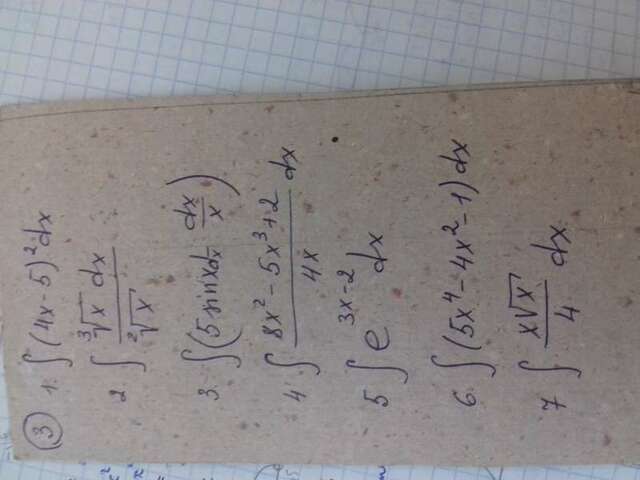 ③ 1. ∫(4x-5)²dx
2. ∫ ∛x dx / ²√x
3. ∫(5 sinxdx dx/x)
4 ∫ (8x² - 5x³ + 2)/4x dx
5 ∫ e^(3x-2) dx
6. ∫(5x⁴ - 4x² - 1) dx
7 ∫ x√x/4 dx